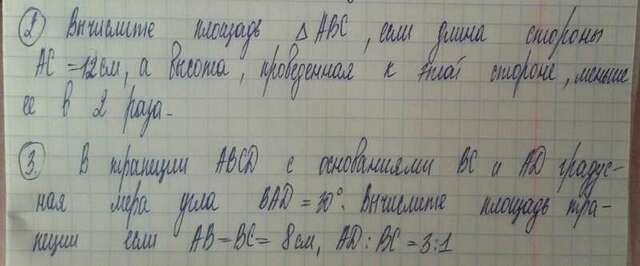 2) Вычислите площадь △ ABC, если длина стороны
AC = 12 см, а высота, проведенная к этой стороне, меньше
ее в 2 раза.
3. В трапеции ABCD с основаниями BC и AD градус-
ная мера угла BAD = 30°. Вычислите площадь тра-
пеции если AB = BC = 8 см, AD : BC = 3:1